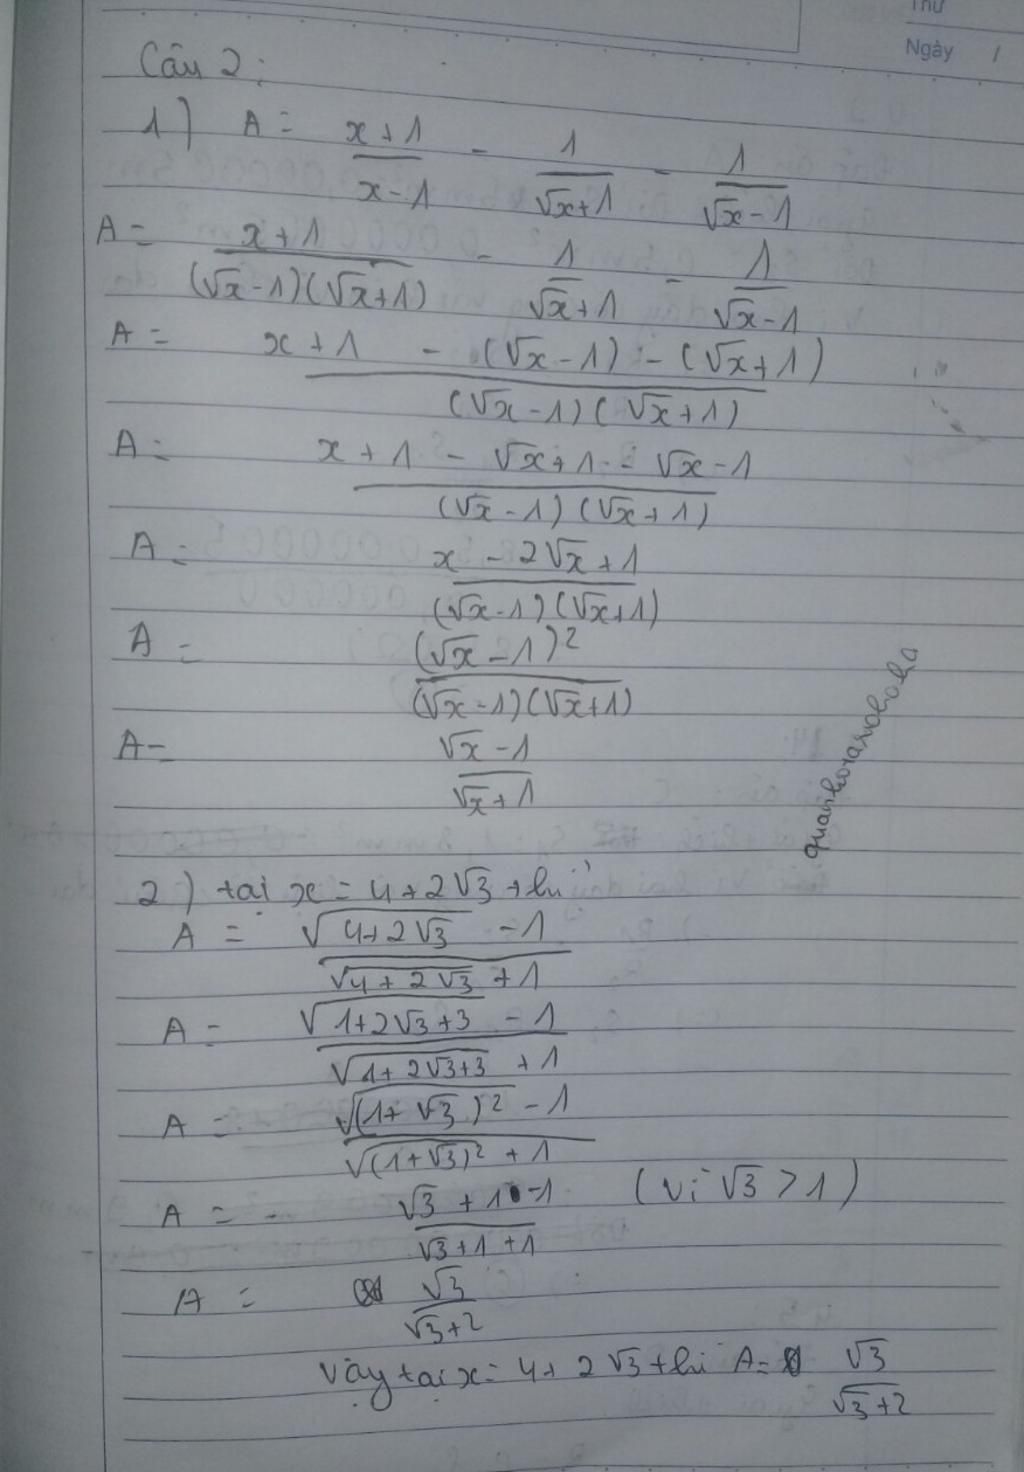 Thứ
Ngày /
Câu 2:
1) A = \frac{x+1}{x-1} - \frac{1}{√x+1} - \frac{1}{√x-1}
A = \frac{x+1}{(√x-1)(√x+1)} - \frac{1}{√x+1} - \frac{1}{√x-1}
A = \frac{x+1 - (√x-1) - (√x+1)}{(√x-1)(√x+1)}
A = \frac{x+1 - √x+1 - √x-1}{(√x-1)(√x+1)}
A = \frac{x - 2√x + 1}{(√x-1)(√x+1)}
A = \frac{(√x-1)²}{(√x-1)(√x+1)}
A = \frac{√x-1}{√x+1}
quanhotanobaha
2) tại x = 4+2√3 thì
A = \frac{\sqrt{4+2√3} - 1}{\sqrt{4+2√3} + 1}
A = \frac{\sqrt{1+2√3+3} - 1}{\sqrt{1+2√3+3} + 1}
A = \frac{\sqrt{(1+√3)²} - 1}{\sqrt{(1+√3)²} + 1}
A = \frac{√3+1-1}{√3+1+1} (vì √3 > 1)
A = \frac{√3}{√3+2}
Vậy tại x = 4+2√3 thì A = \frac{√3}{√3+2}